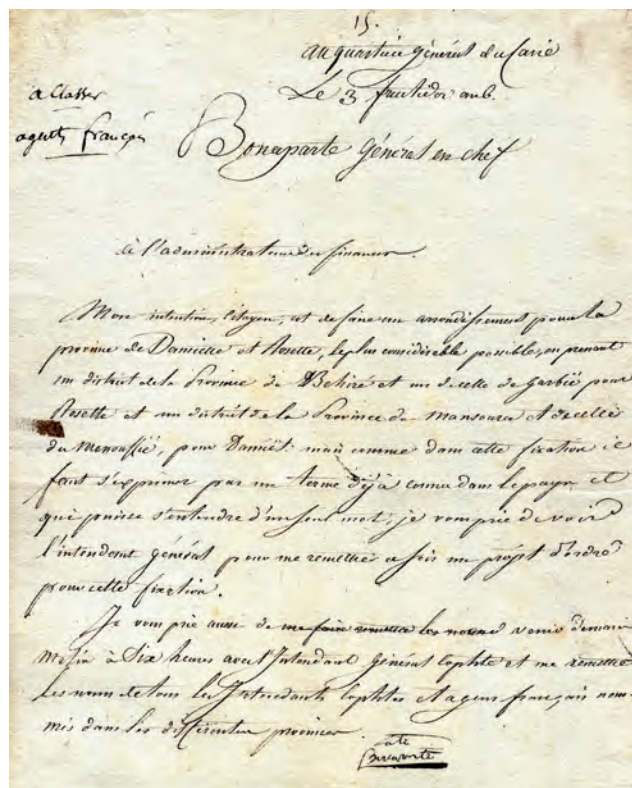 15.
au quartier général du Caire
Le 3 fructidor an 6.
a Classer
agents français
Bonaparte Général en chef
à l'administrateur des finances.
Mon intention, Citoyen, est de faire un arrondissement pour la
province de Damiette et Rosette, le plus considérable possible, en prenant
un district de la Province de Behiré et un de celle de Garbié pour
Rosette et un district de la Province de Mansoura et de celle
du Menouffié, pour Damiët: mais comme dans cette fixation il
faut s'exprimer par un terme déjà connu dans le pays et
qui puisse s'entendre d'un seul mot; je vous prie de voir
l'intendant général pour me remettre ce soir un projet d'ordre
pour cette fixation.
Je vous prie aussi de me faire remettre les noms venir demain
matin à Six heures avec l'Intendant Général Cophte et me remettre
Les noms de tous les Intendants Cophtes et agens français nom-
més dans les différentes provinces.
Bonaparte